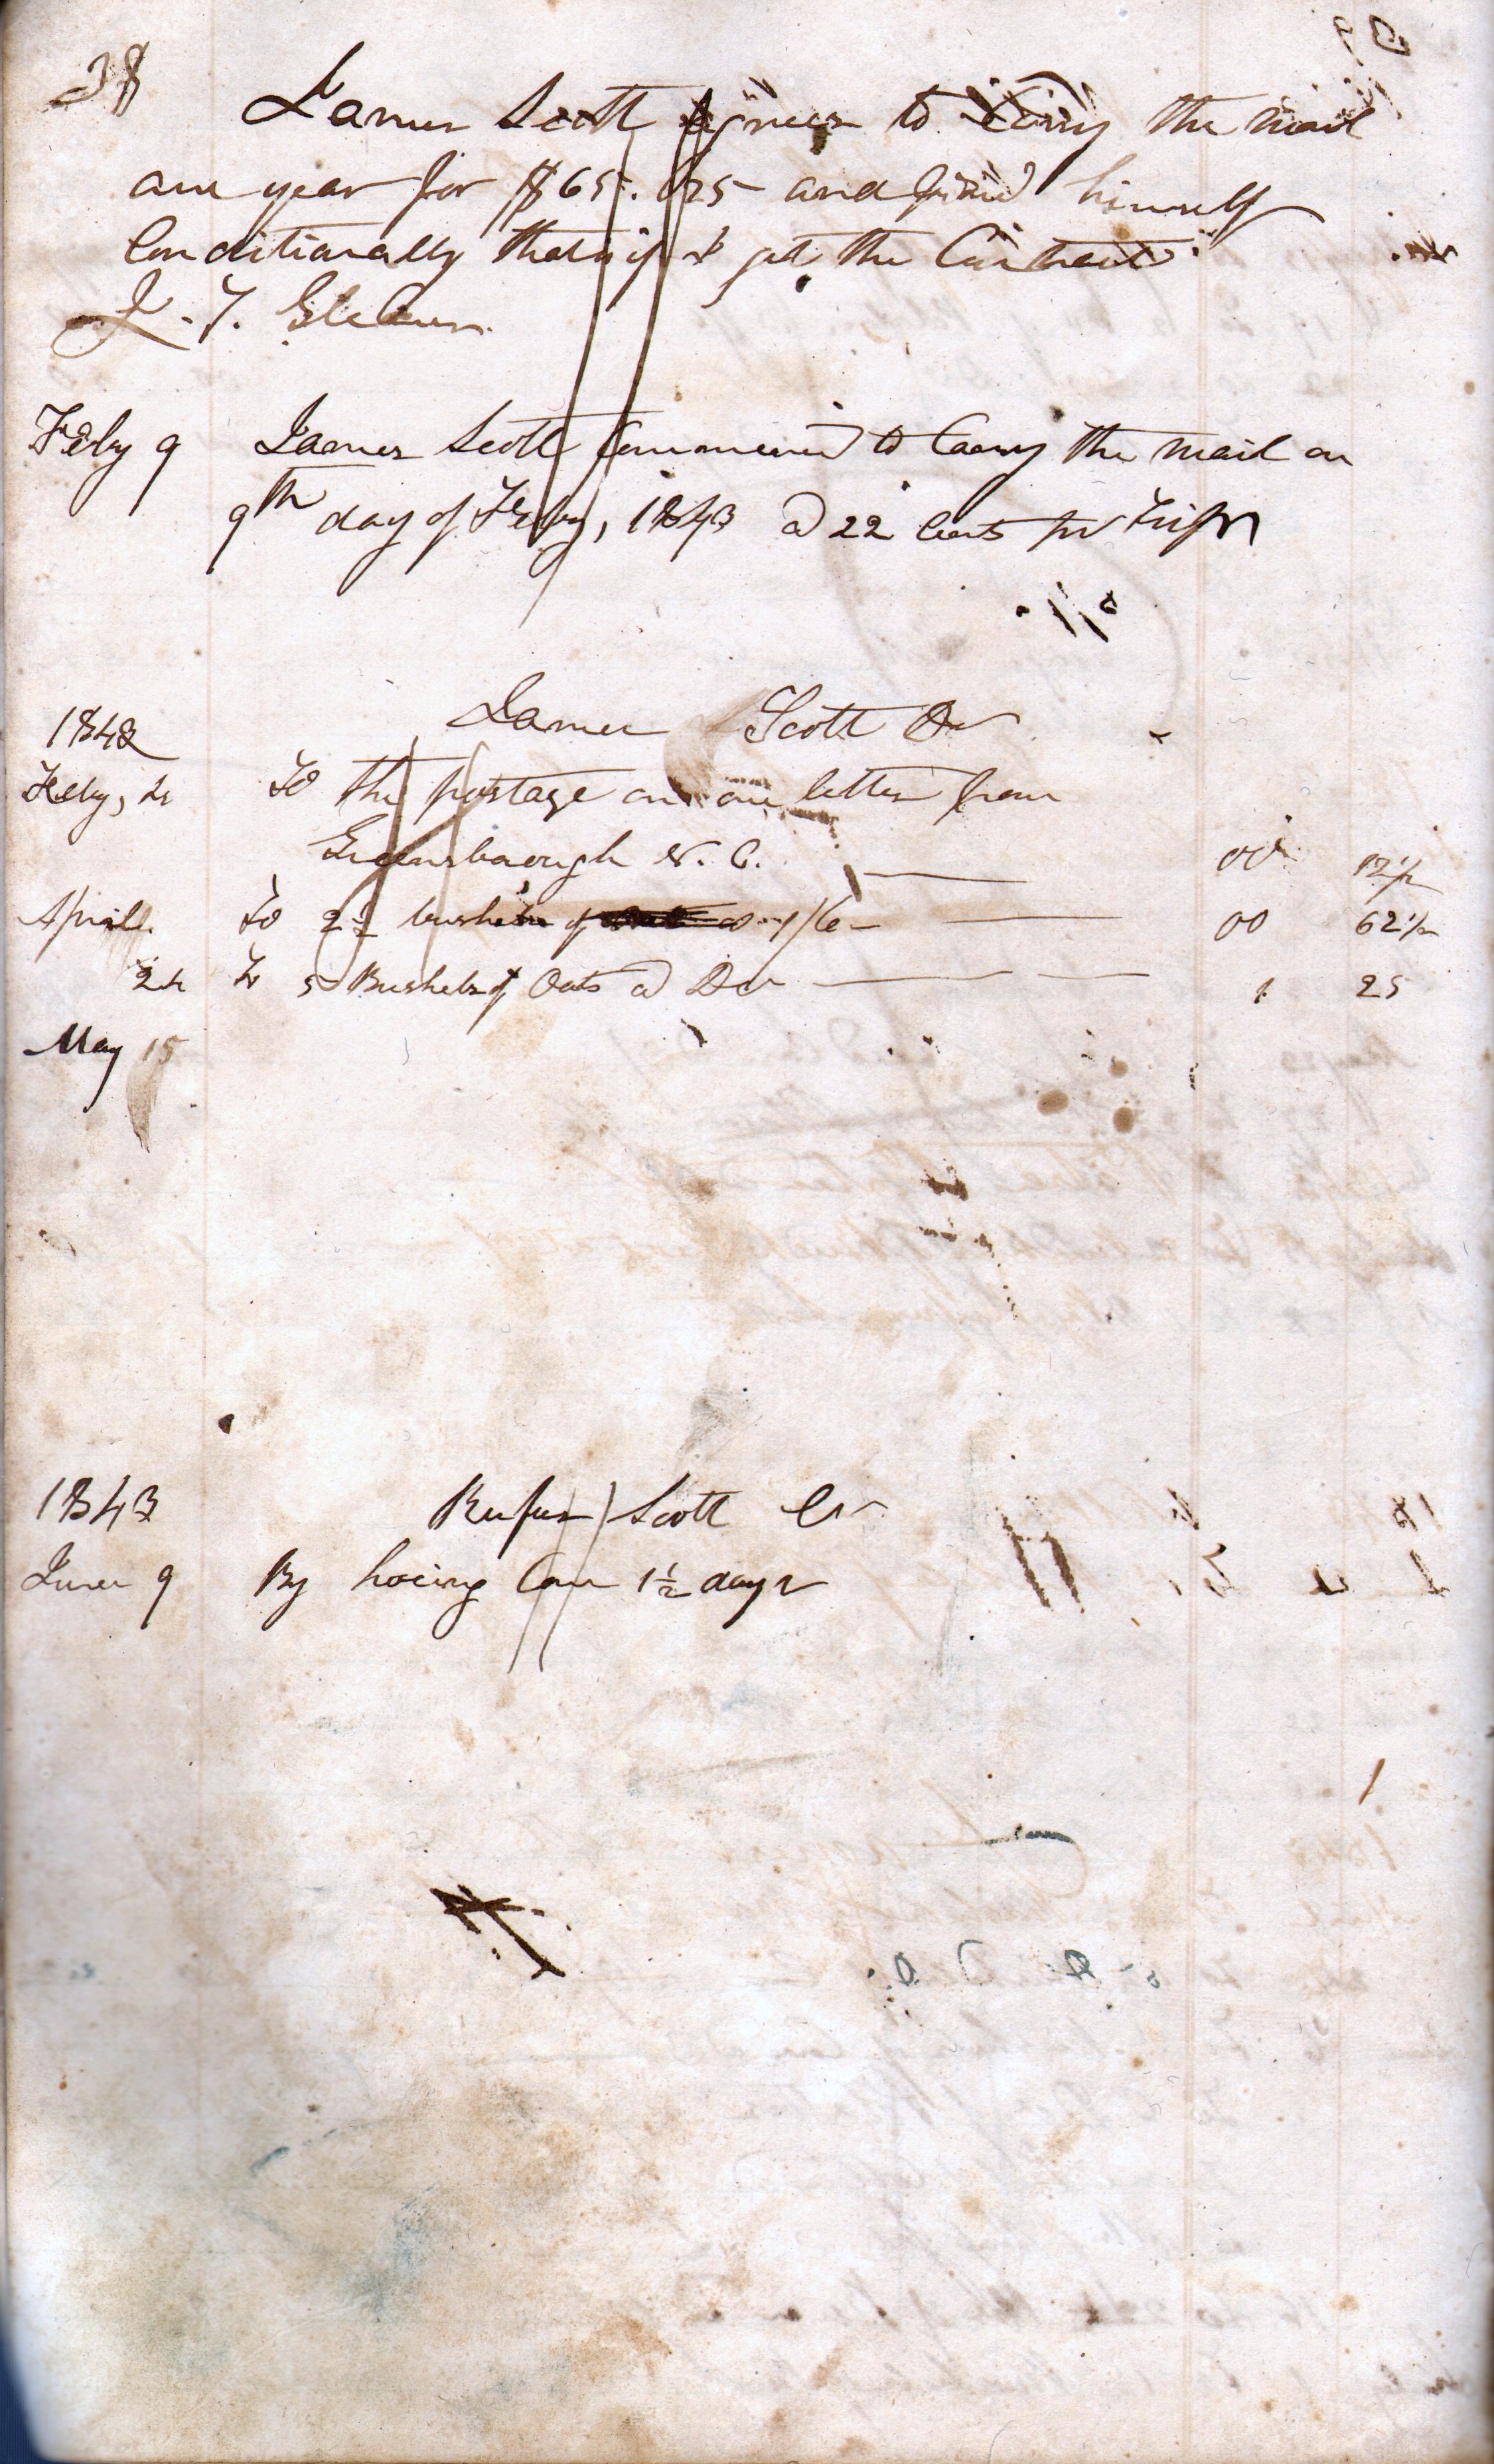 38
James Scott agrees to Carry the mail
one year for $65.625 and find himself
Conditionally that is if I get the Contract
J. T.
Feby 9 James Scott Commenced to Carry the mail on
9th day of Feby, 1843 @ 22 Cents pr Trip
James Scott Dr
1842
Feby, 24 To the postage on one letter from
Greensborough N. C. 00 12½
Aprill To 2½ bushels of Oats @ 1/6 00 62½
24 To 5 Bushels of Oats @ Do 1 25
May 15
1843 Rufus Scott Cr
June 9 By hoeing Corn 1½ days